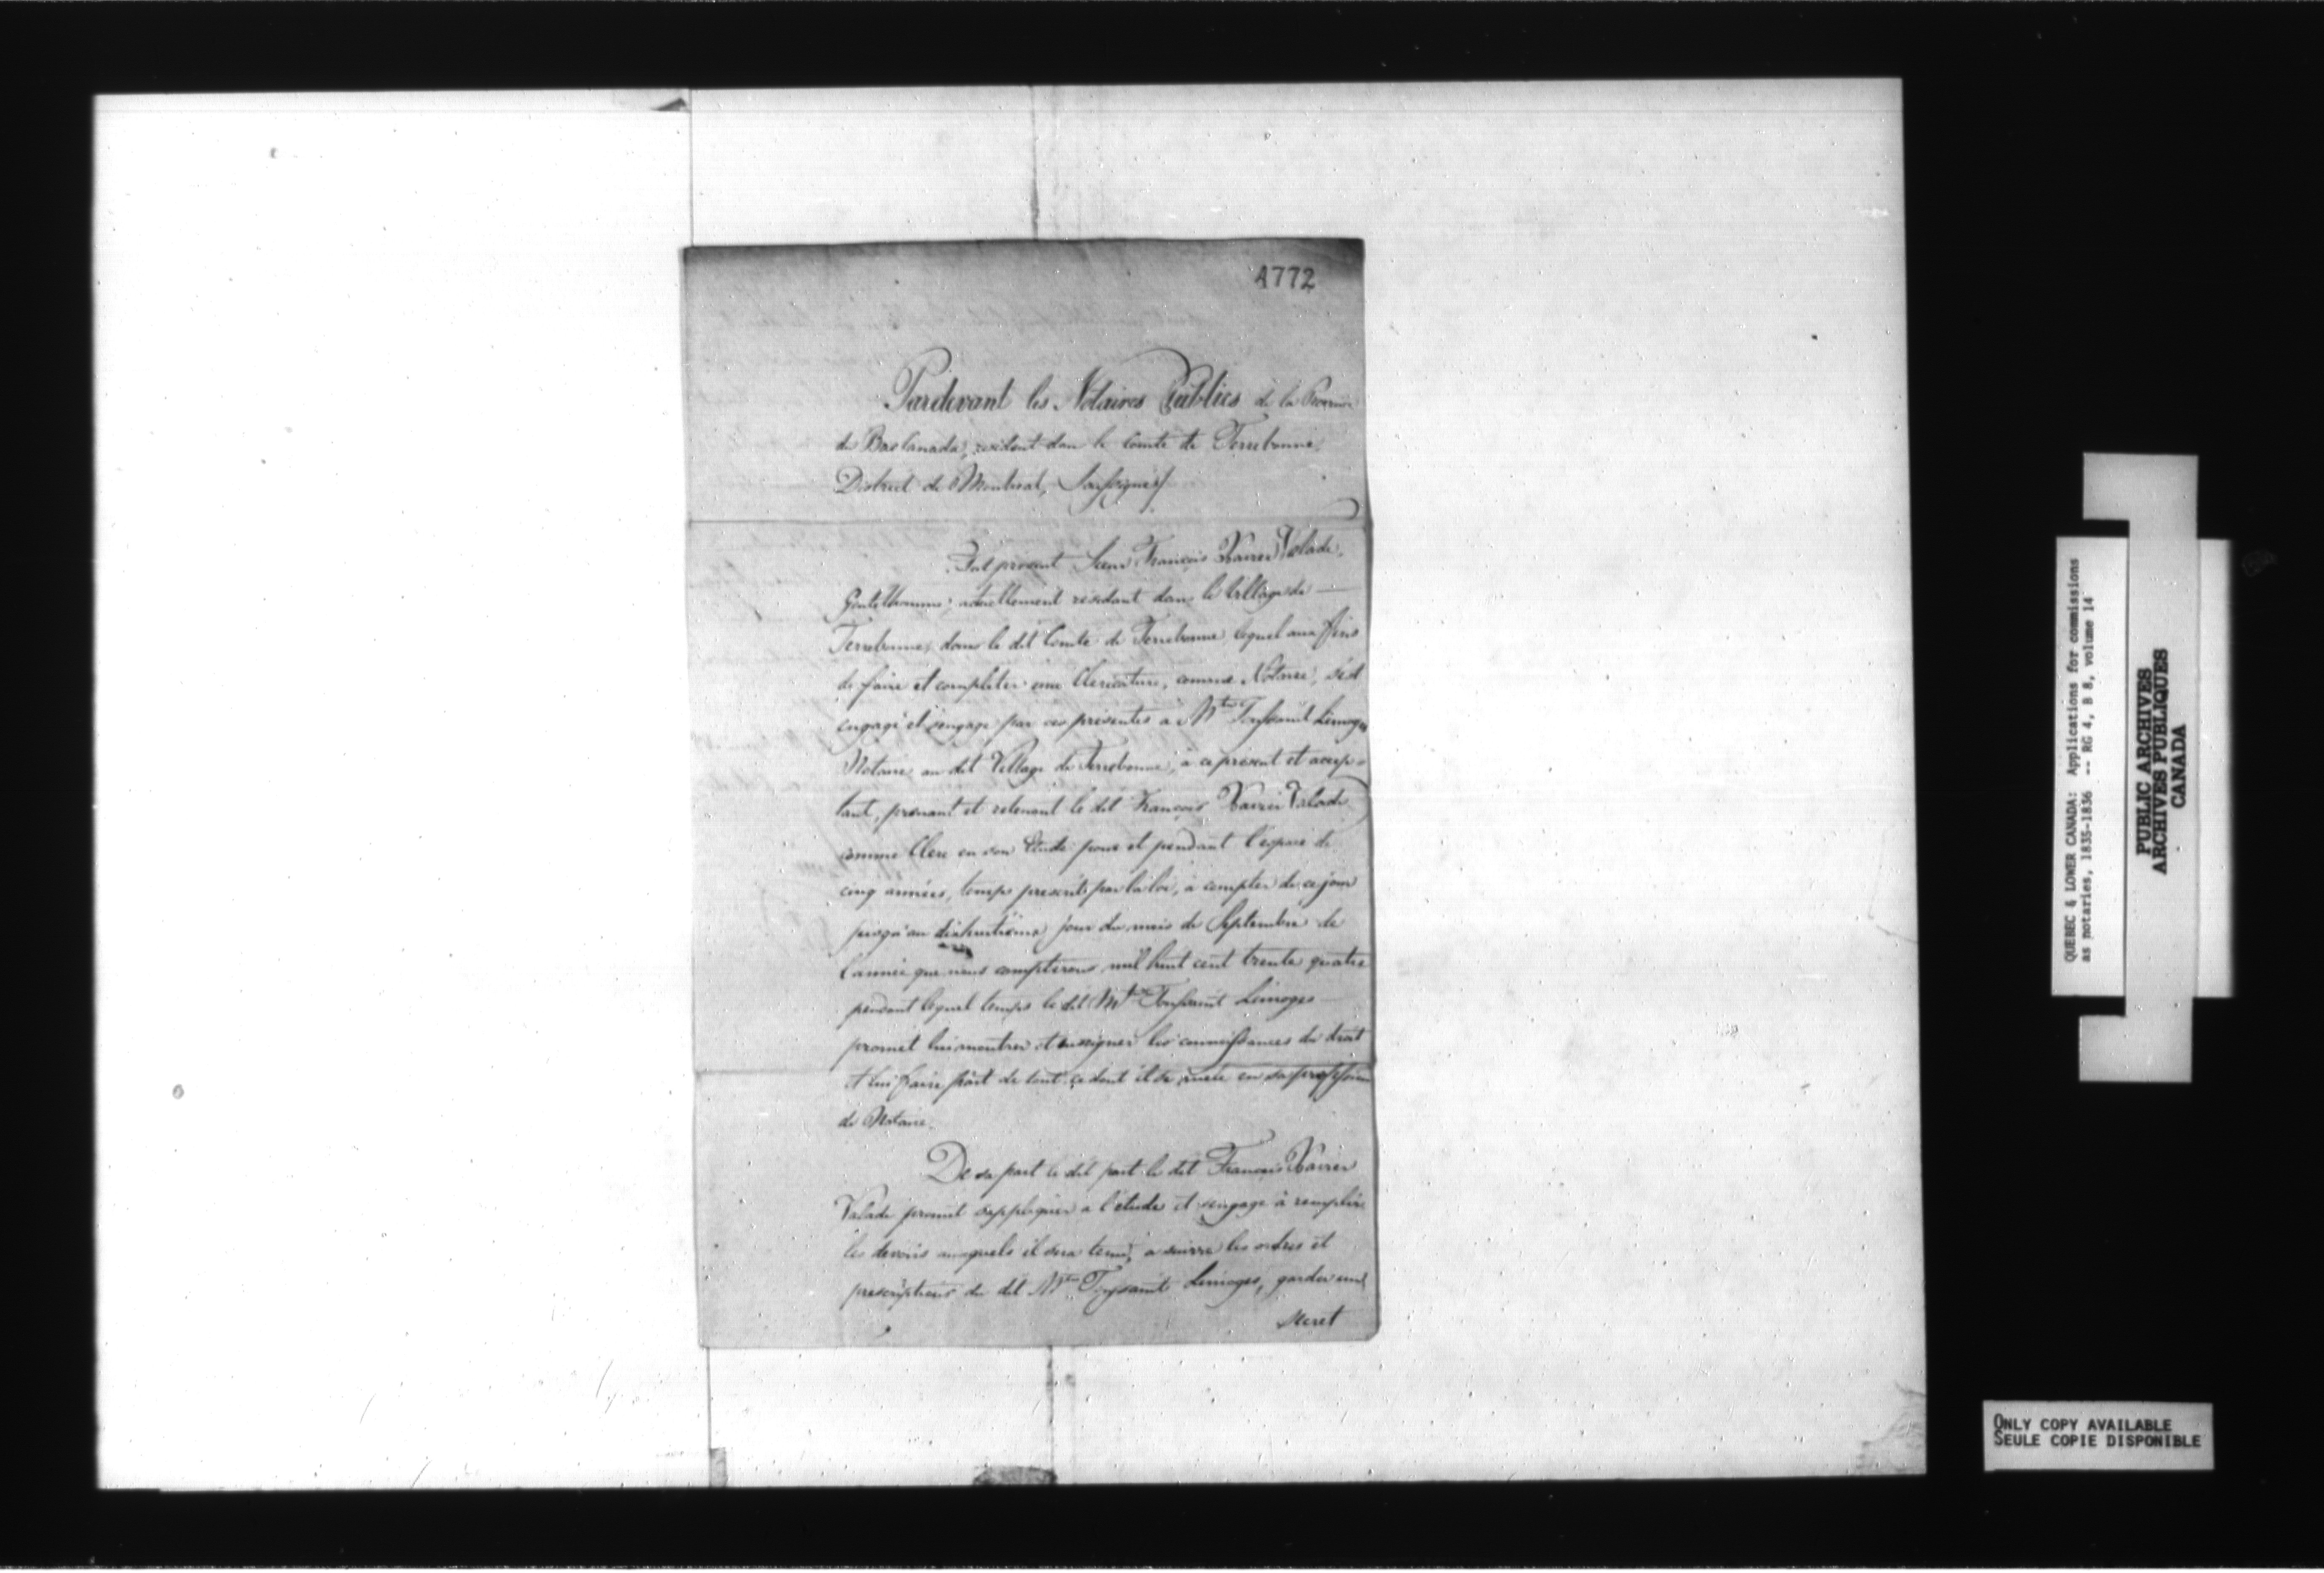 4772
Pardevant les Notaires Publics de la Province
du Bas Canada, résidant dans le Comté de Terrebonne,
District de Montreal, Soussignés/
Fut présent Sieur François Xavier Valade,
Gentilhomme, actuellement résidant dans le Village de
Terrebonne, dans le dit Comté de Terrebonne, lequel aux fins
de faire et completer une Clericature, comme Notaire, s'est
engagé et s'engage par ces présentes à Mtre Toussaint Limoges
Notaire au dit Village de Terrebonne, à ce présent et accep-
tant, prenant et retenant le dit François Xavier Valade
comme Clerc en son Etude pour et pendant l'espace de
cinq années, temps prescrit par la loi, à compter de ce jour
jusqu'au dixhuitieme jour du mois de Septembre de
l'année que nous compterons mil huit cent trente quatre
pendant lequel temps le dit Mtre Toussaint Limoges
promet lui montrer et enseigner les connoissances du droit
et lui faire part de tout ce dont il se mêle en sa profession
de Notaire.
De sa part le dit part le dit François Xavier
Valade promet s'appliquer a l'étude et s'engage à remplir
les devoirs auxquels il sera tenu, a suivre les ordres et
prescriptions du dit Mtre Toussaint Limoges, garder un
secret
QUEBEC & LOWER CANADA: Applications for commissions
as notaries, 1835-1836 -- RG 4, B 8, volume 14
PUBLIC ARCHIVES
ARCHIVES PUBLIQUES
CANADA
ONLY COPY AVAILABLE
SEULE COPIE DISPONIBLE